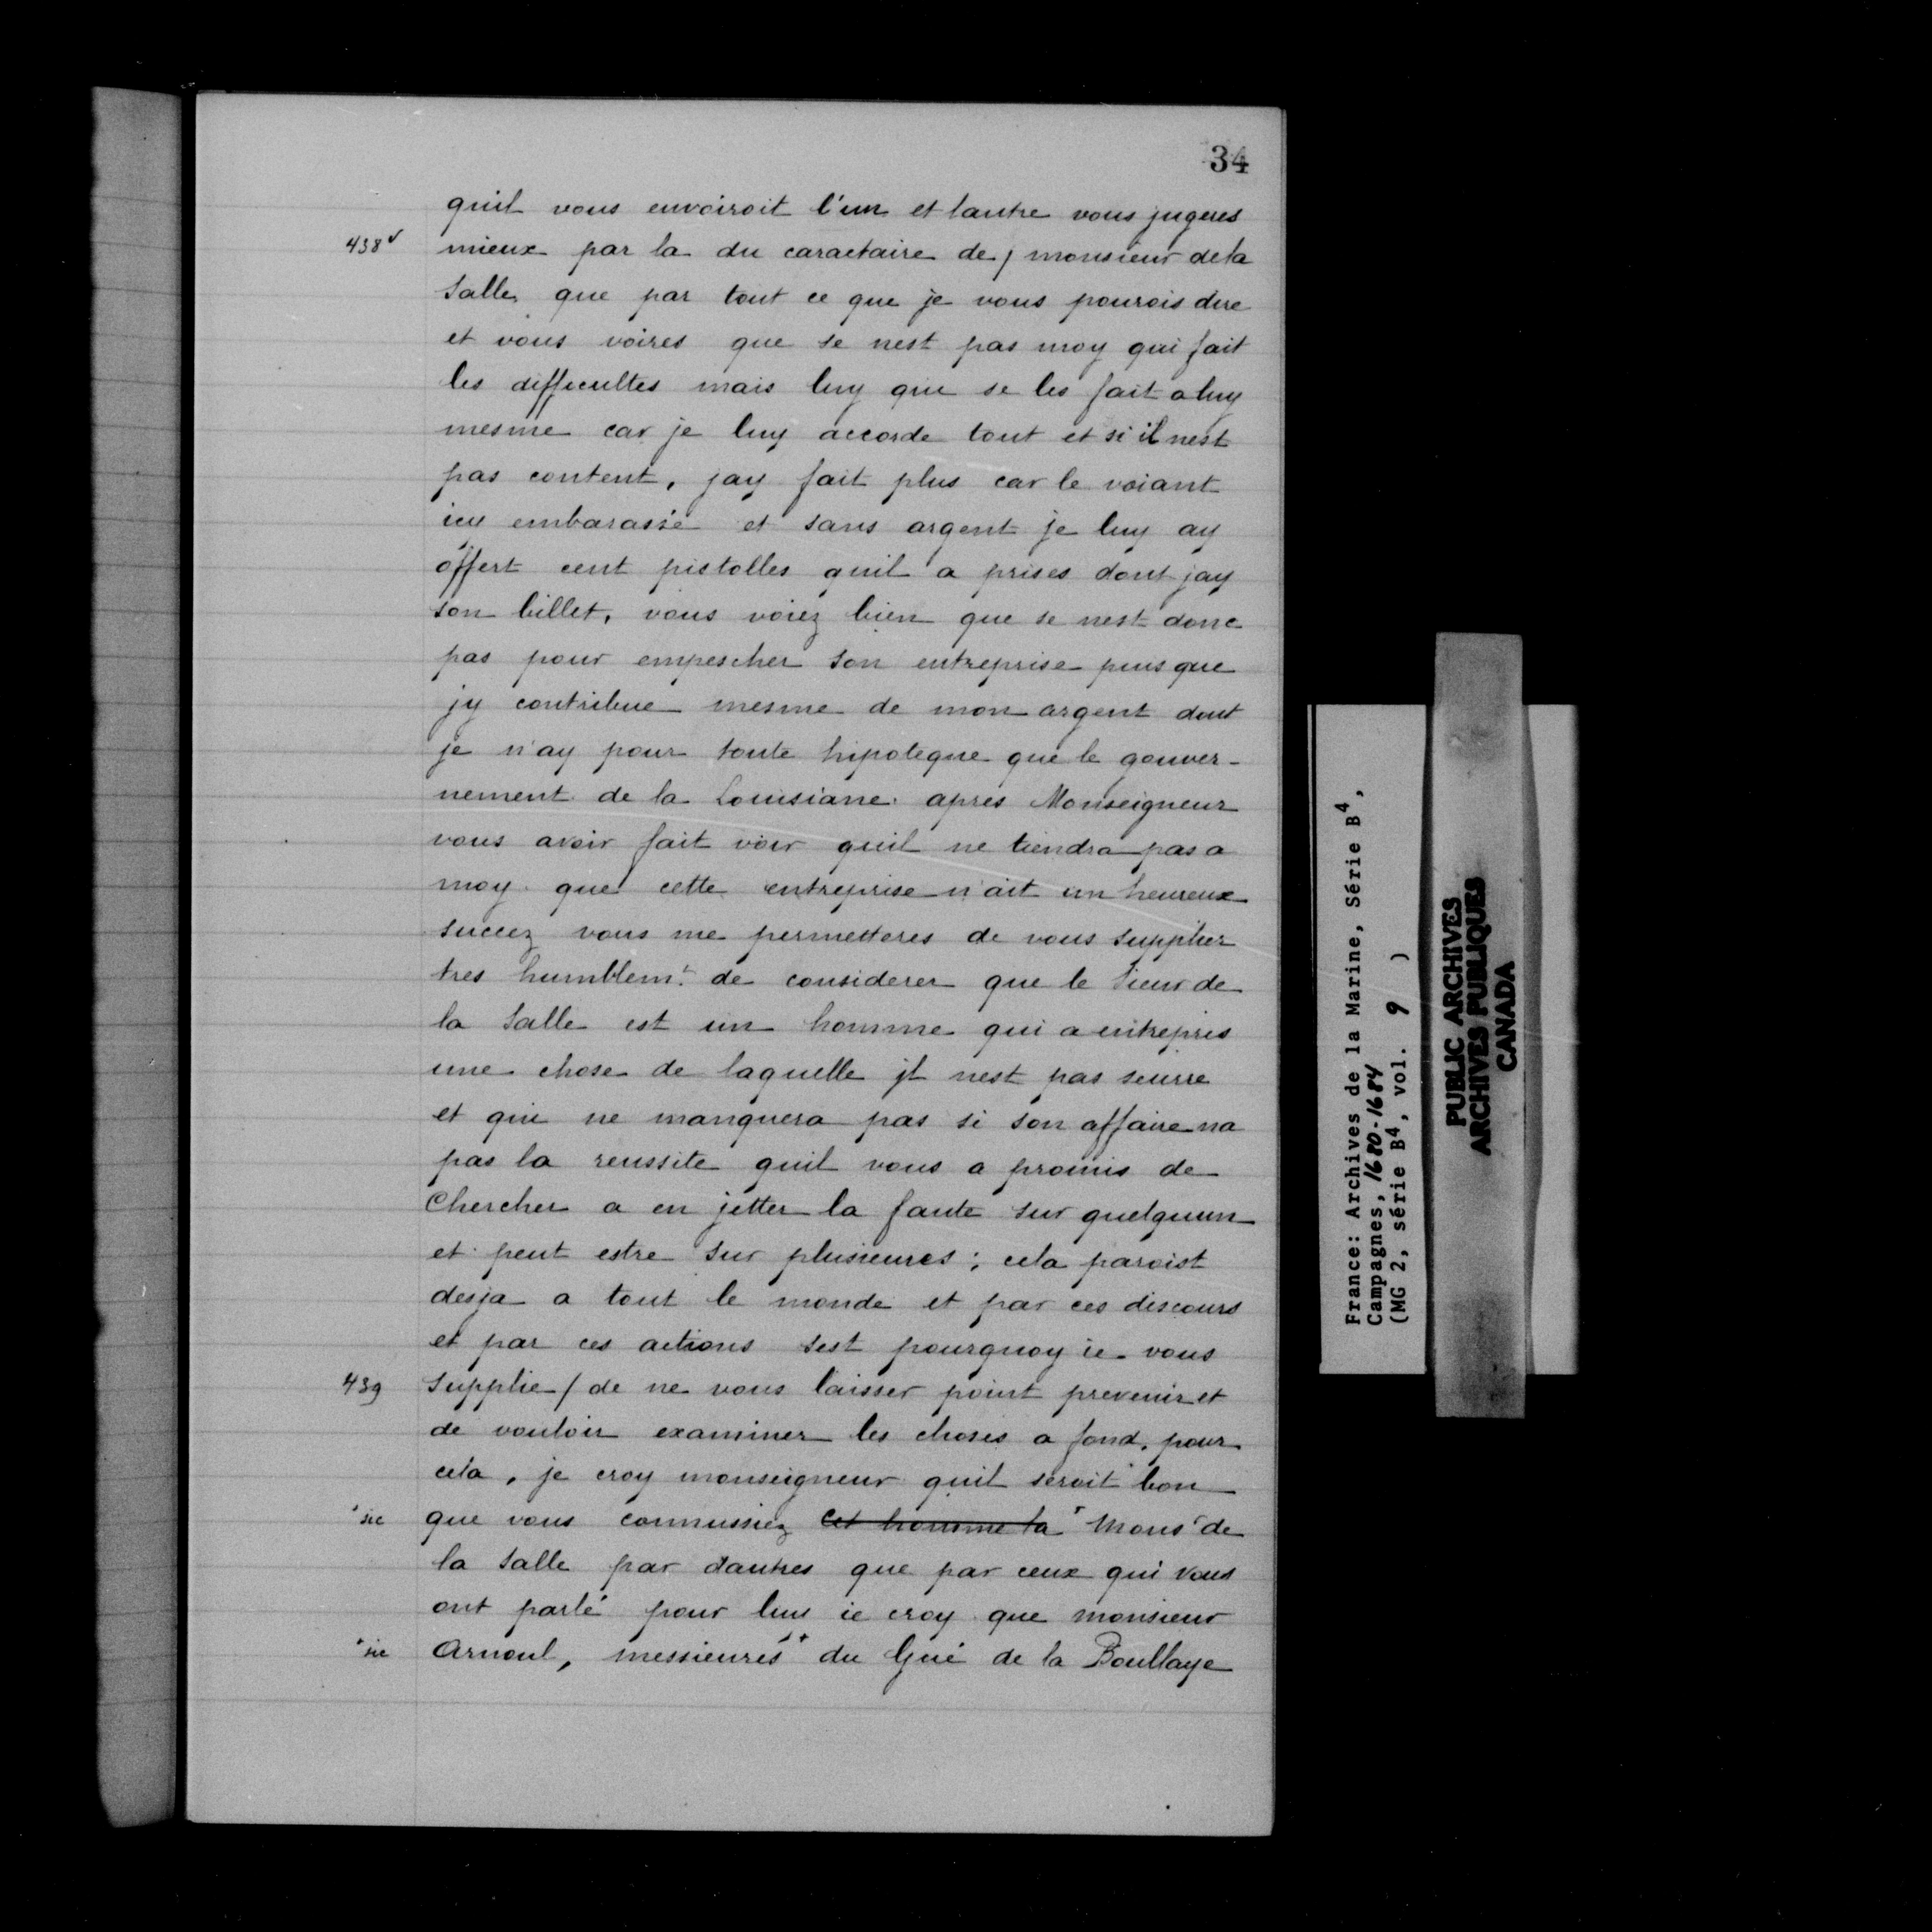 34
quil vous envoiroit l'un et lautre vous jugeres
438v mieux par la du caractaire de / monsieur dela
Salle que par tout ce que je vous pourois dire
et vous voires que se nest pas moy qui fait
les difficultes mais luy qui se les fait a luy
mesme car je luy accorde tout et si il nest
pas content, jay fait plus car le voiant
icy embarassé et sans argent je luy ay
offert cent pistolles quil a prises dont jay
son billet, vous voiez bien que se nest donc
pas pour empescher son entreprise puisque
jy contribue mesme de mon argent dont
je n'ay pour toute hipoteque que le gouver-
nement de la Louisiane. apres Monseigneur
vous avoir fait voir quil ne tiendra pas a
moy que cette entreprise n'ait un heureux
succez vous me permetteres de vous supplier
tres humblemt de considerer que le Sieur de
la Salle est un homme qui a entrepris
une chose de laquelle jl nest pas seurre
et qui ne manquera pas si son affaire na
pas la reussite quil vous a promis de
Chercher a en jetter la faute sur quelquun
et peut estre sur plusieures; cela paroist
desja a tout le monde et par ces discours
et par ces actions sest pourquoy ie vous
439 supplie / de ne vous laisser point prevenir et
de vouloir examiner les choses a fond, pour
cela, je croy monseigneur quil seroit bon
*sic que vous connussiez cet homme la* Monsr de
la Salle par dautres que par ceux qui vous
ont parlé pour luy ie croy que monsieur
*sic Arnoul, messieures* du Gué de la Boullaye
France: Archives de la Marine, Série B4,
Campagnes, 1680-1684
(MG 2, série B4, vol. 9 )
PUBLIC ARCHIVES
ARCHIVES PUBLIQUES
CANADA